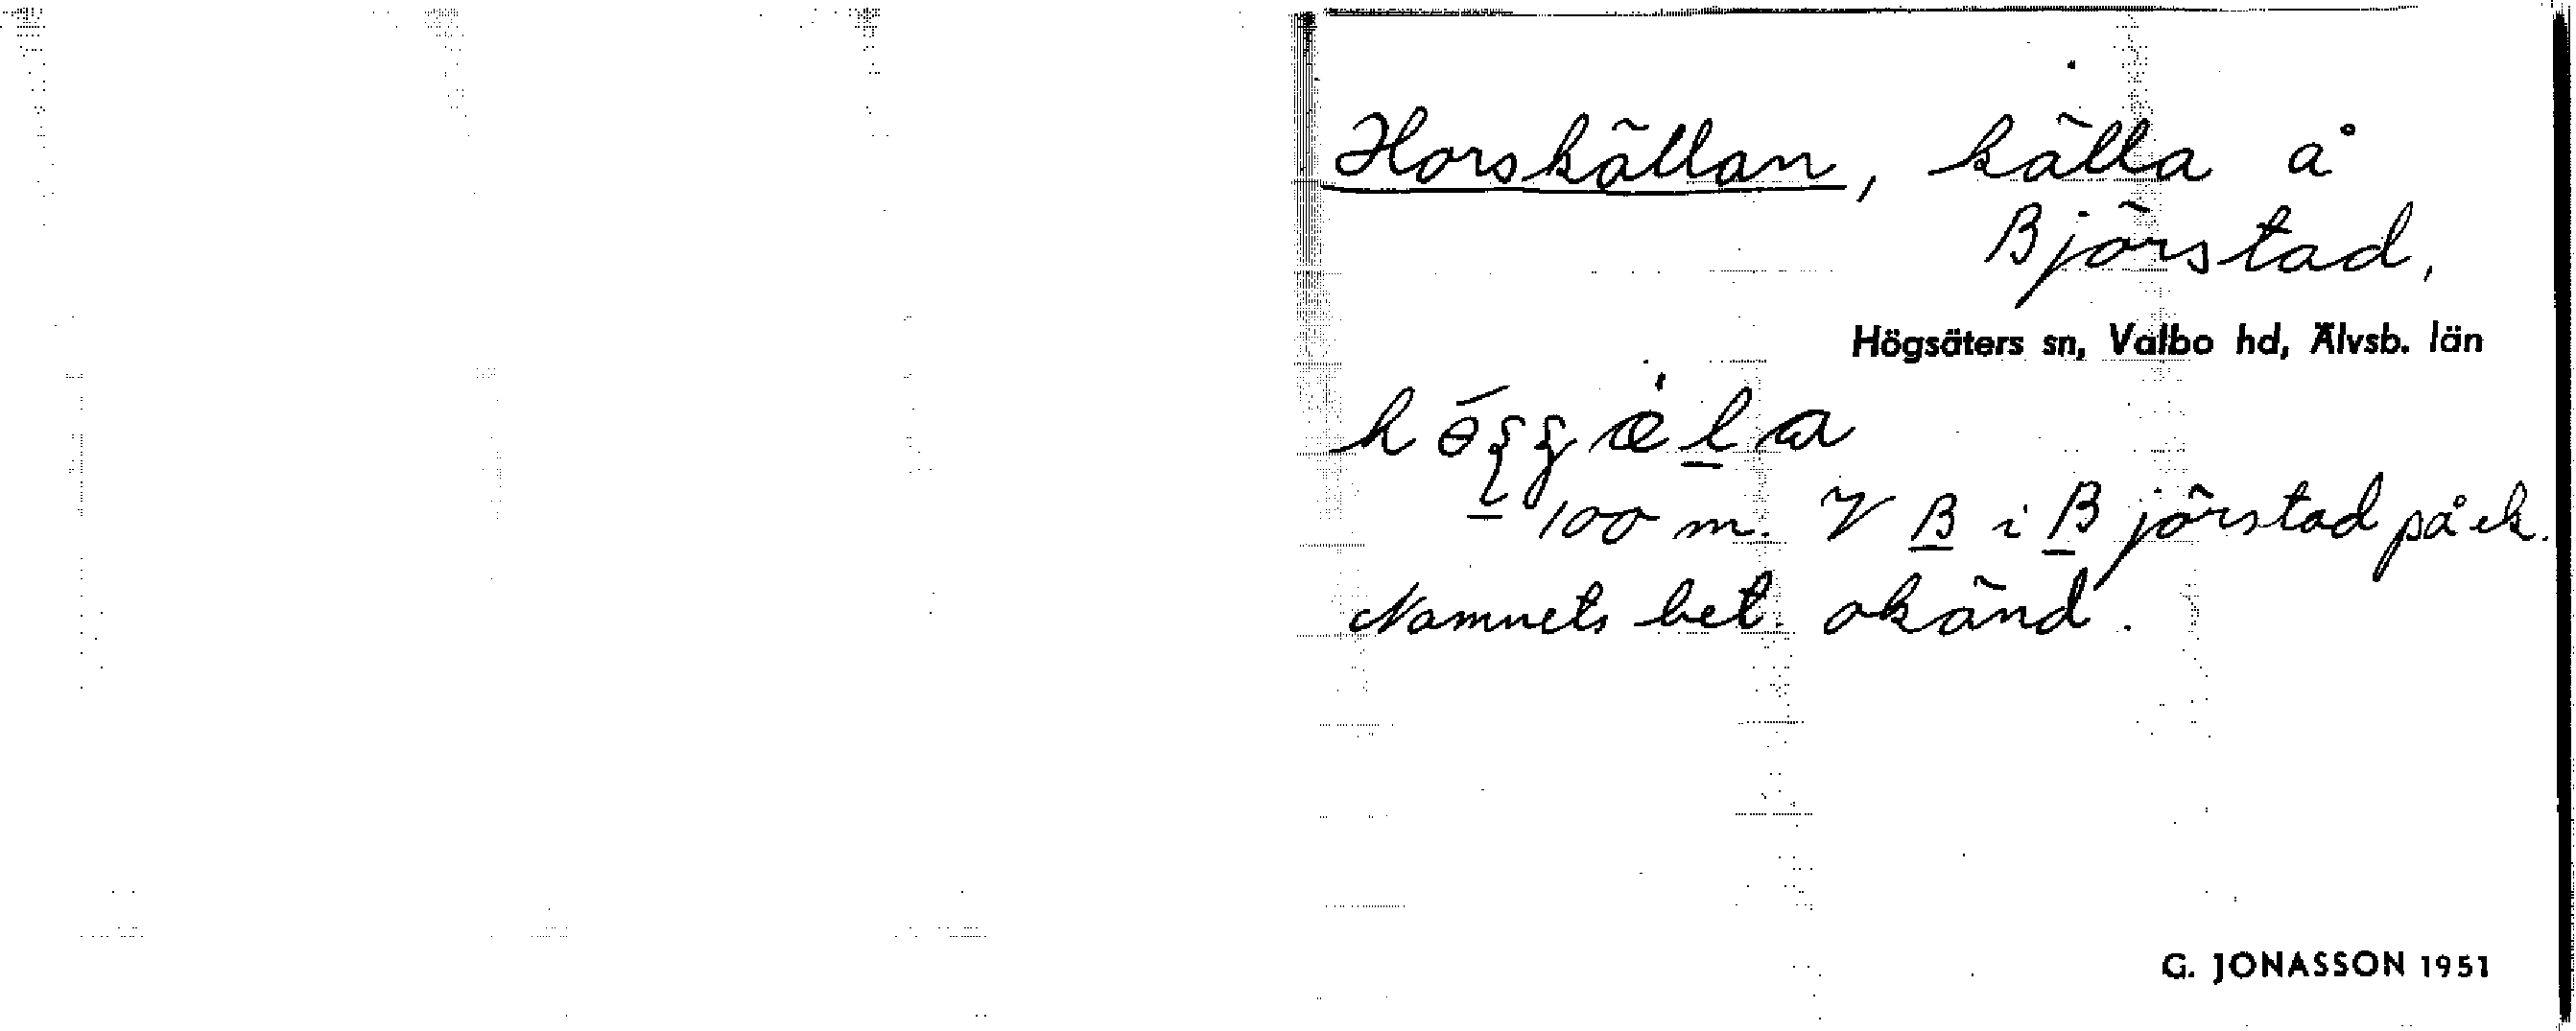 Horskällan, källa å
Björstad,
Högsäters sn, Valbo hd, Älvsb. län
100 m. V B i Björstad på ek.
Namnets bet. okänd.
G. JONASSON 1951